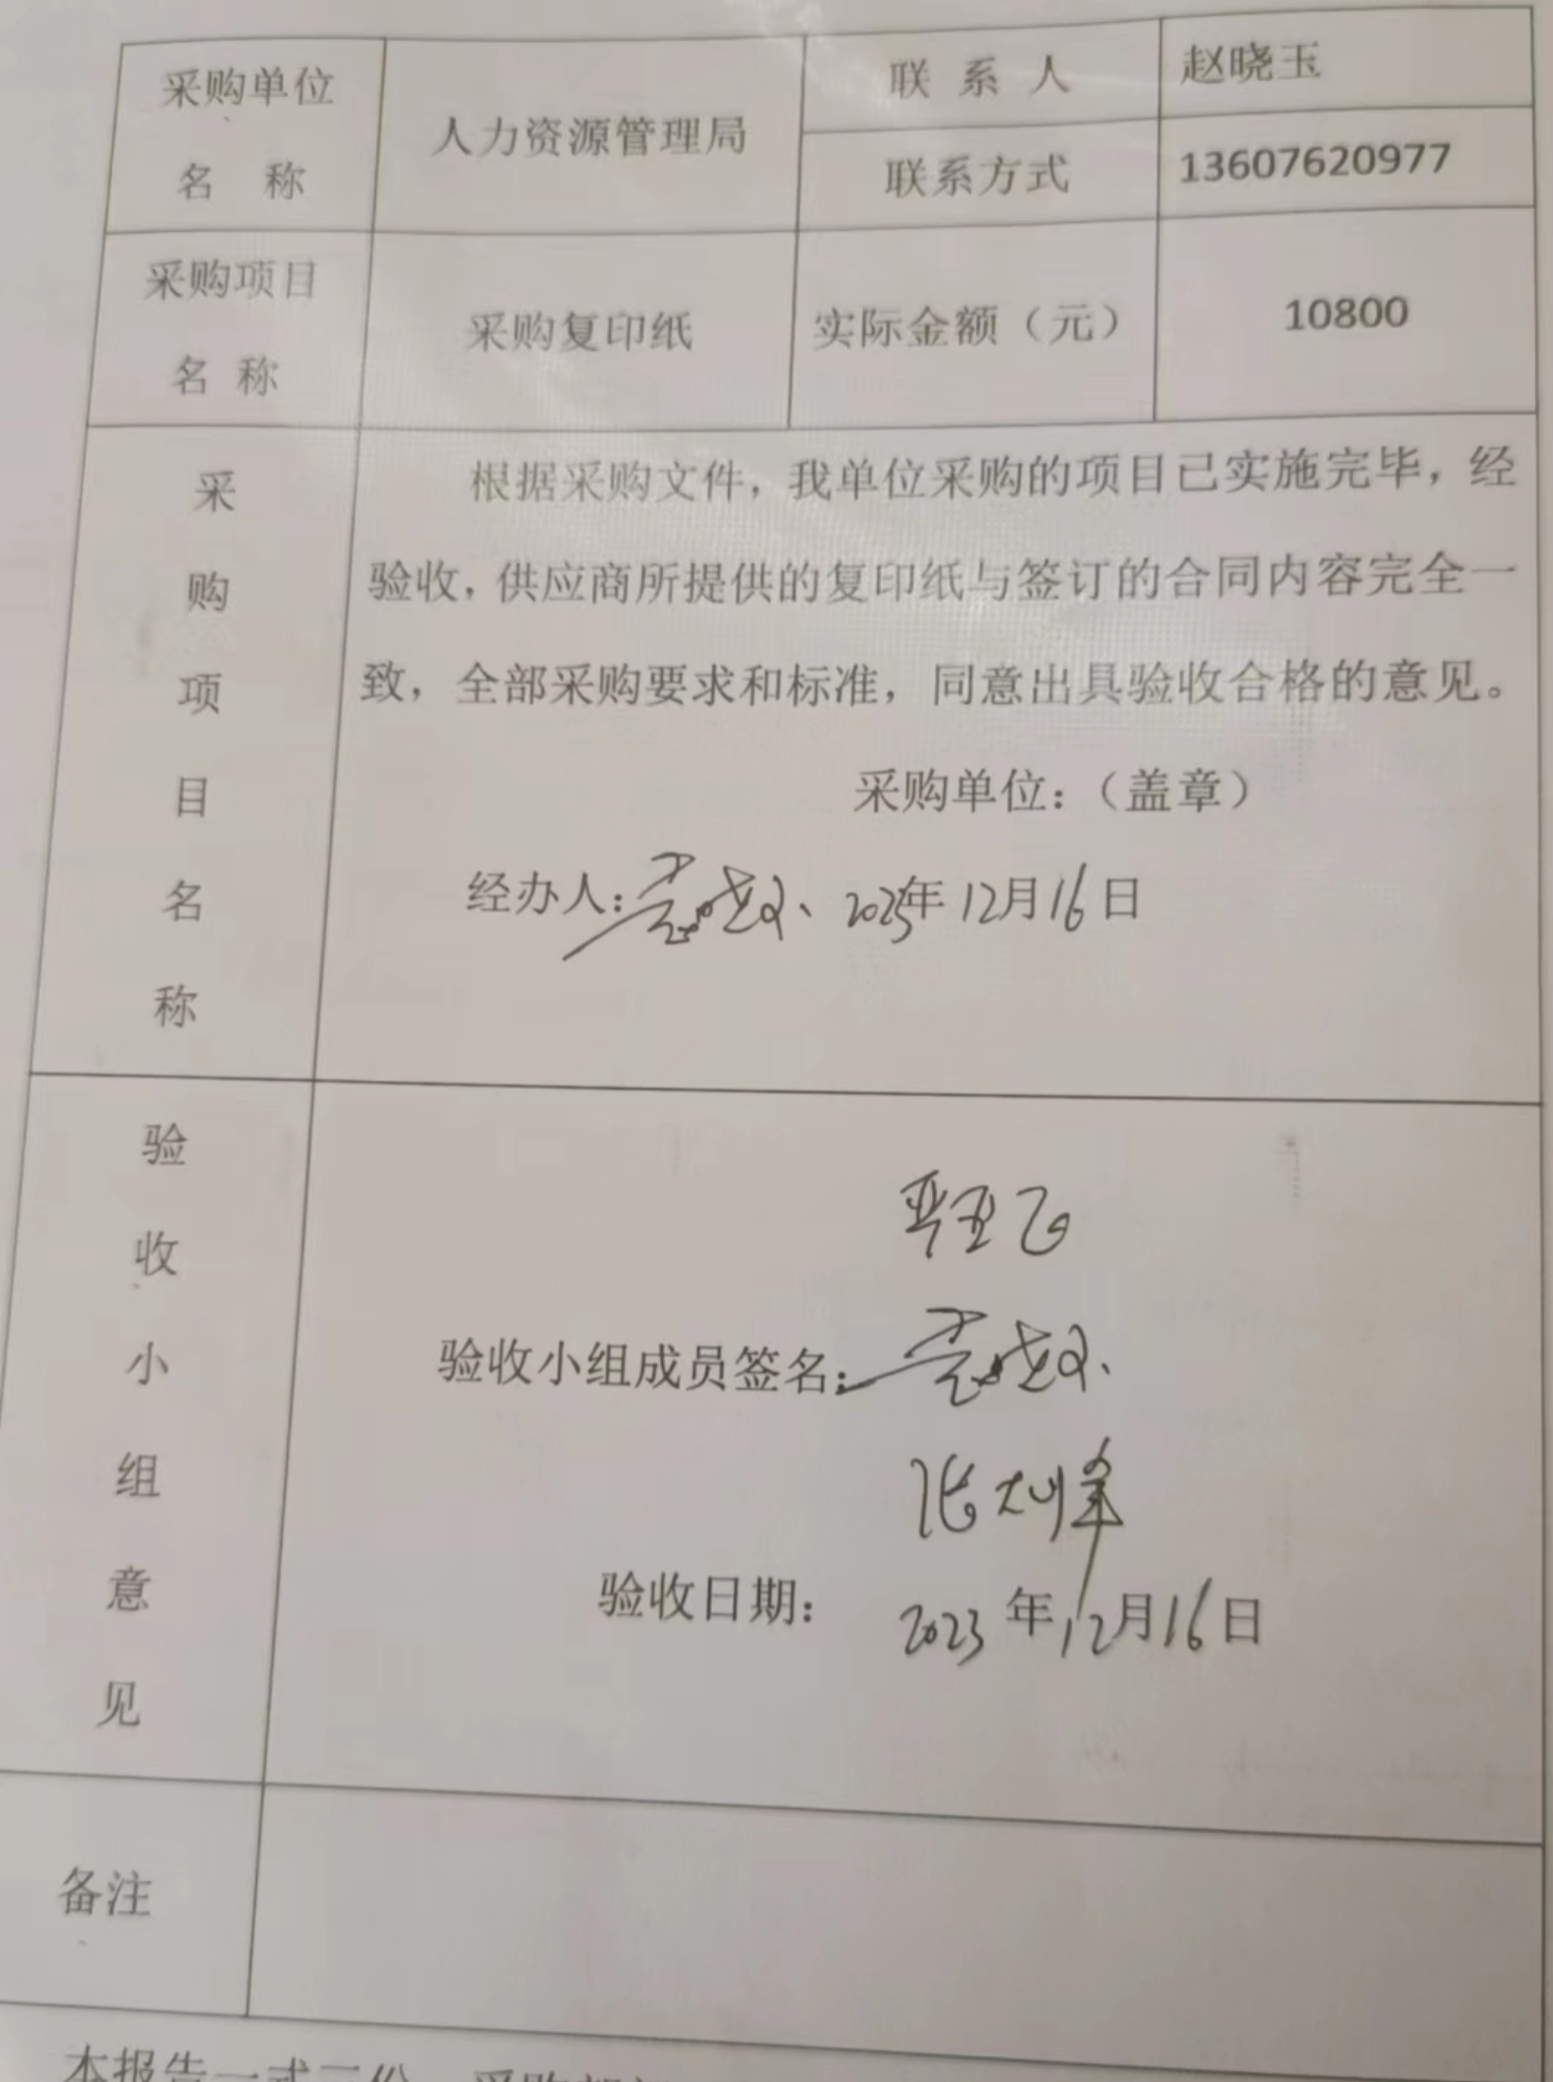 采购单位
名 称
人力资源管理局
联 系 人
赵晓玉
联系方式
13607620977
采购项目
名 称
采购复印纸
实际金额（元）
10800
采
购
项
目
名
称
根据采购文件，我单位采购的项目已实施完毕，经
验收，供应商所提供的复印纸与签订的合同内容完全一
致，全部采购要求和标准，同意出具验收合格的意见。
采购单位：（盖章）
经办人： 2023年12月16日
验
收
小
组
意
见
验收小组成员签名：
验收日期： 2023年12月16日
备注